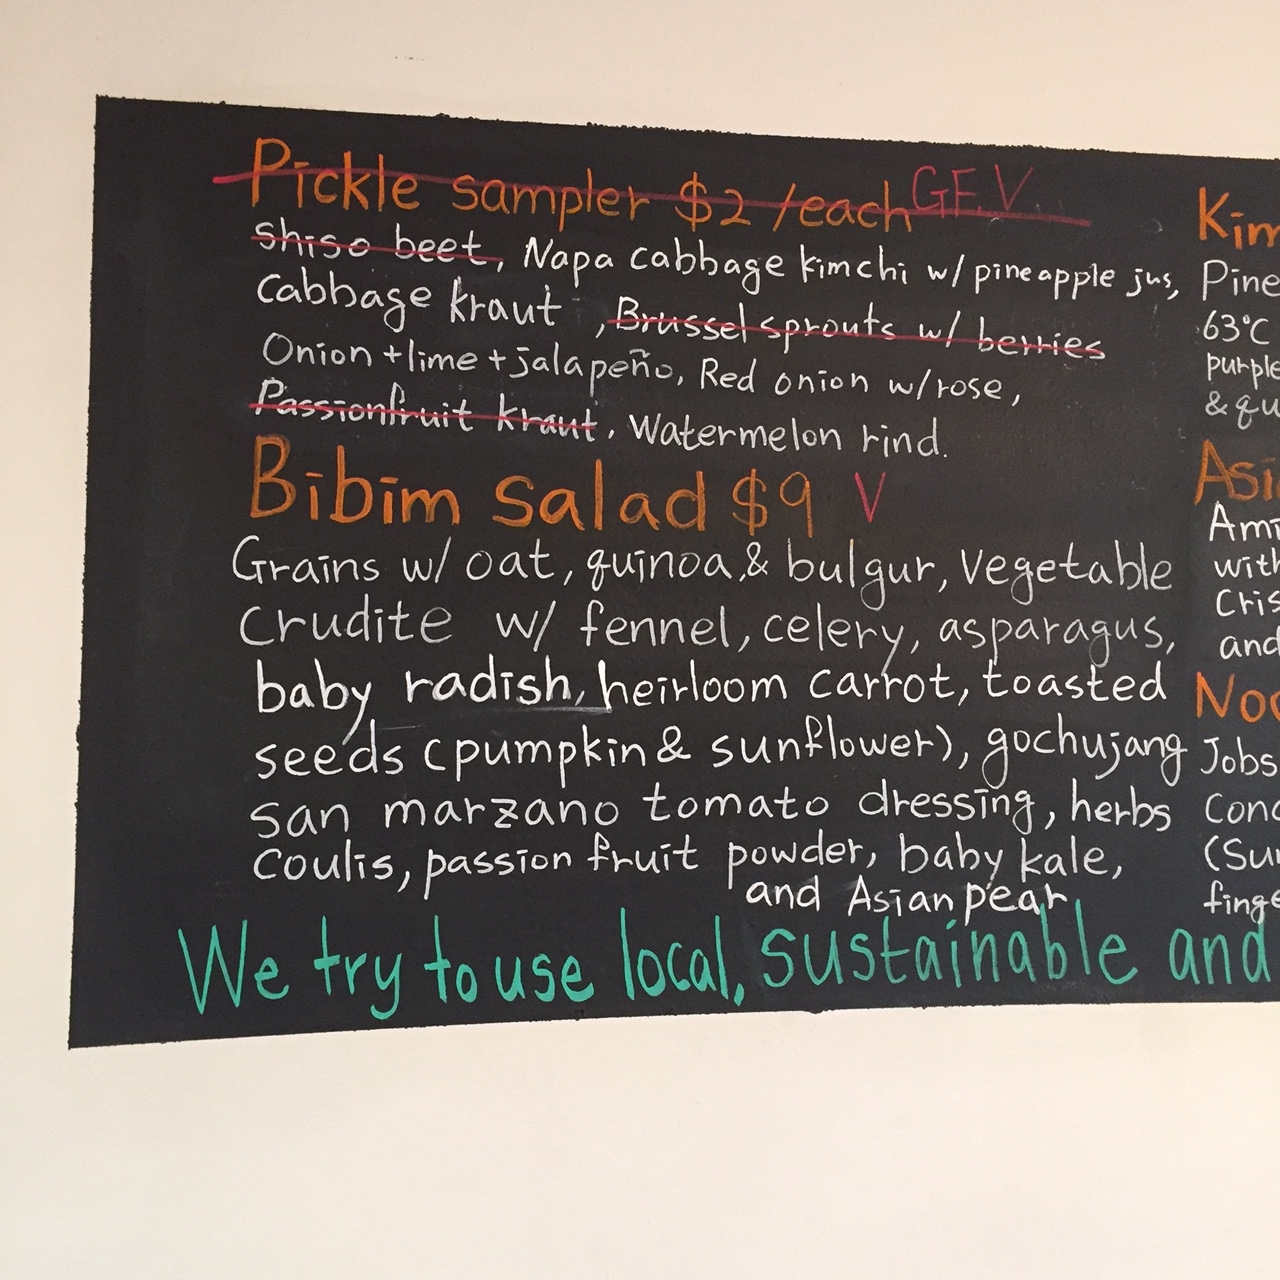 Pickle sampler $2 /each GF, V
shiso beet, Napa cabbage kimchi w/ pineapple jus,
Cabbage kraut , Brussel sprouts w/ berries
Onion + lime + jalapeño, Red onion w/ rose,
Passionfruit kraut, Watermelon rind.
Bibim salad $9 V
Grains w/ oat, quinoa, & bulgur, vegetable
Crudite w/ fennel, celery, asparagus,
baby radish, heirloom carrot, toasted
seeds (pumpkin & sunflower), gochujang
san marzano tomato dressing, herbs
coulis, passion fruit powder, baby kale,
and Asian pear
Kim
Pine
63°C
purple
& qu
Asi
Ami
with
Cris
and
Noo
Jobs
Conc
(Sun
finge
We try to use local, sustainable and